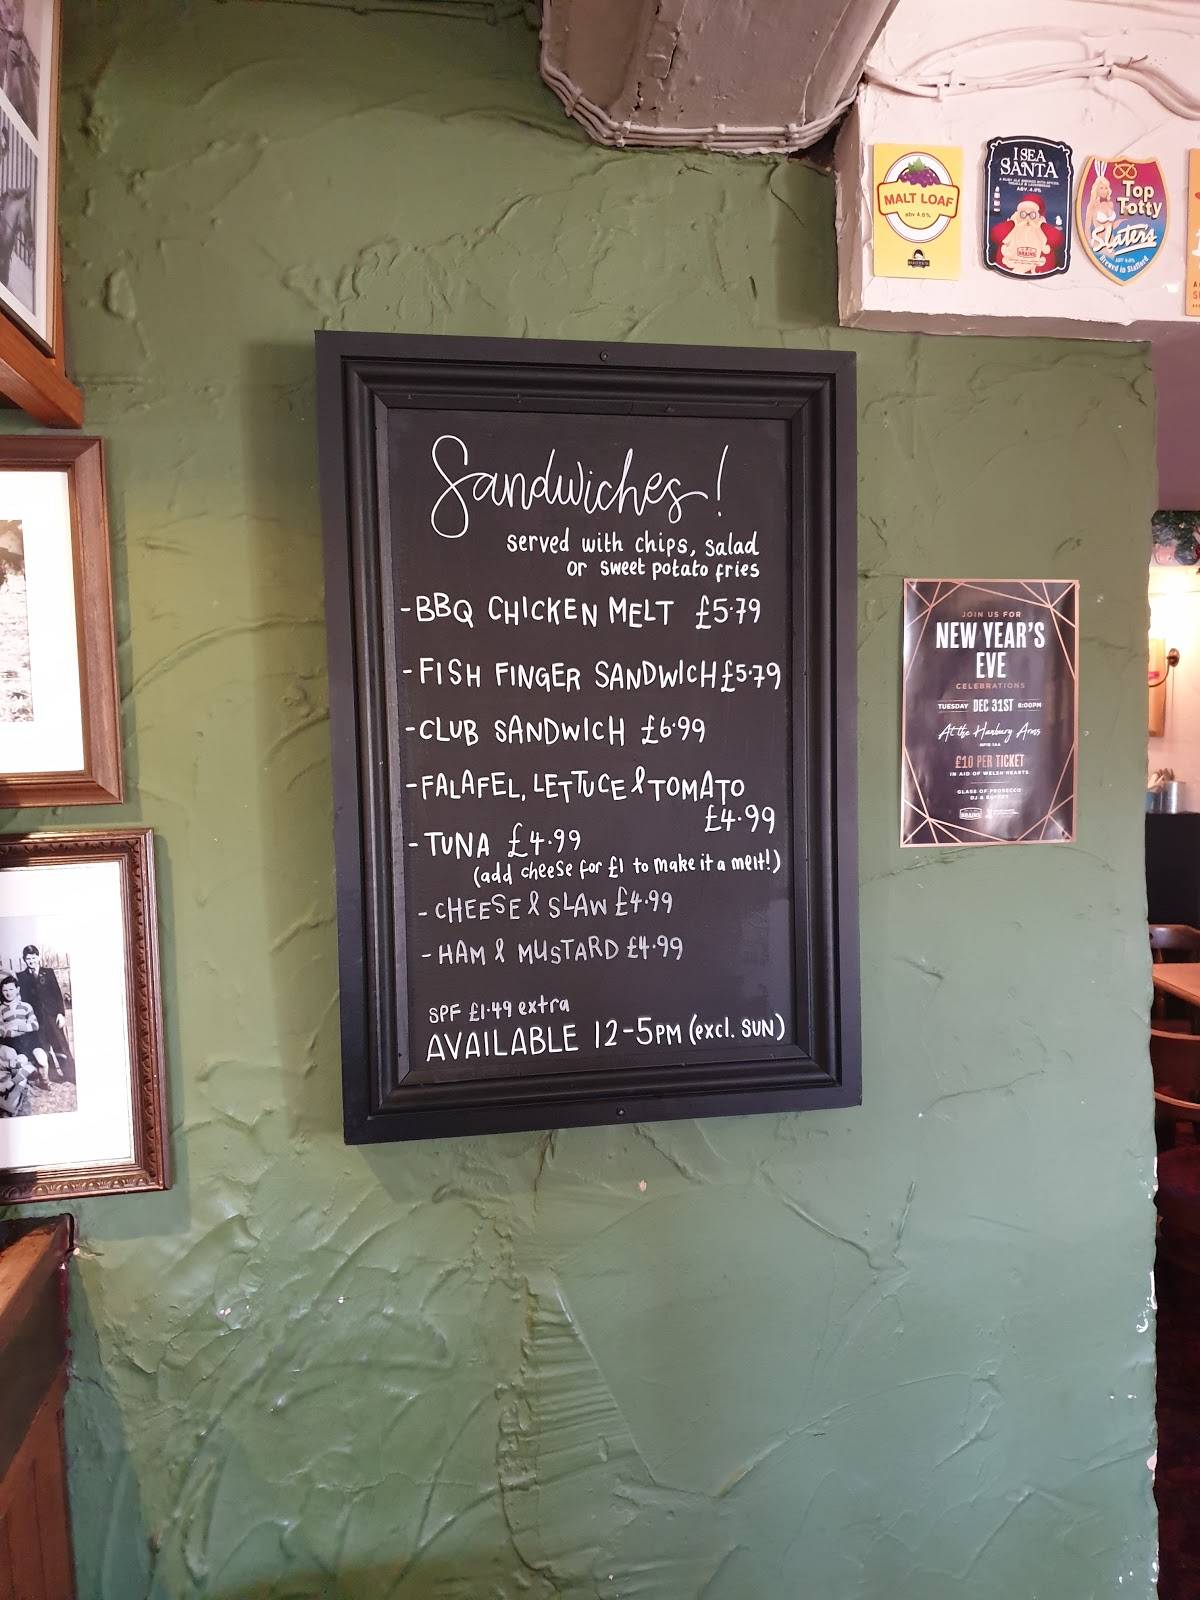 Sandwiches!
served with chips, salad
or sweet potato fries
-BBQ CHICKEN MELT £5.79
-FISH FINGER SANDWICH £5.79
-CLUB SANDWICH £6.99
-FALAFEL, LETTUCE & TOMATO
£4.99
-TUNA £4.99
(add cheese for £1 to make it a melt!)
-CHEESE & SLAW £4.99
-HAM & MUSTARD £4.99
SPF £1.49 extra
AVAILABLE 12-5PM (excl. SUN)
MALT LOAF
abv 4.6%
I SEA
SANTA
BRAINS
Top
Totty
Slaters
Brewed in Stafford
JOIN US FOR
NEW YEAR'S
EVE
CELEBRATIONS
TUESDAY DEC 31ST 8:00PM
At the Hanbury Arms
£10 PER TICKET
IN AID OF WELSH HEARTS
GLASS OF PROSECCO
DJ & BUFFET
BRAINS